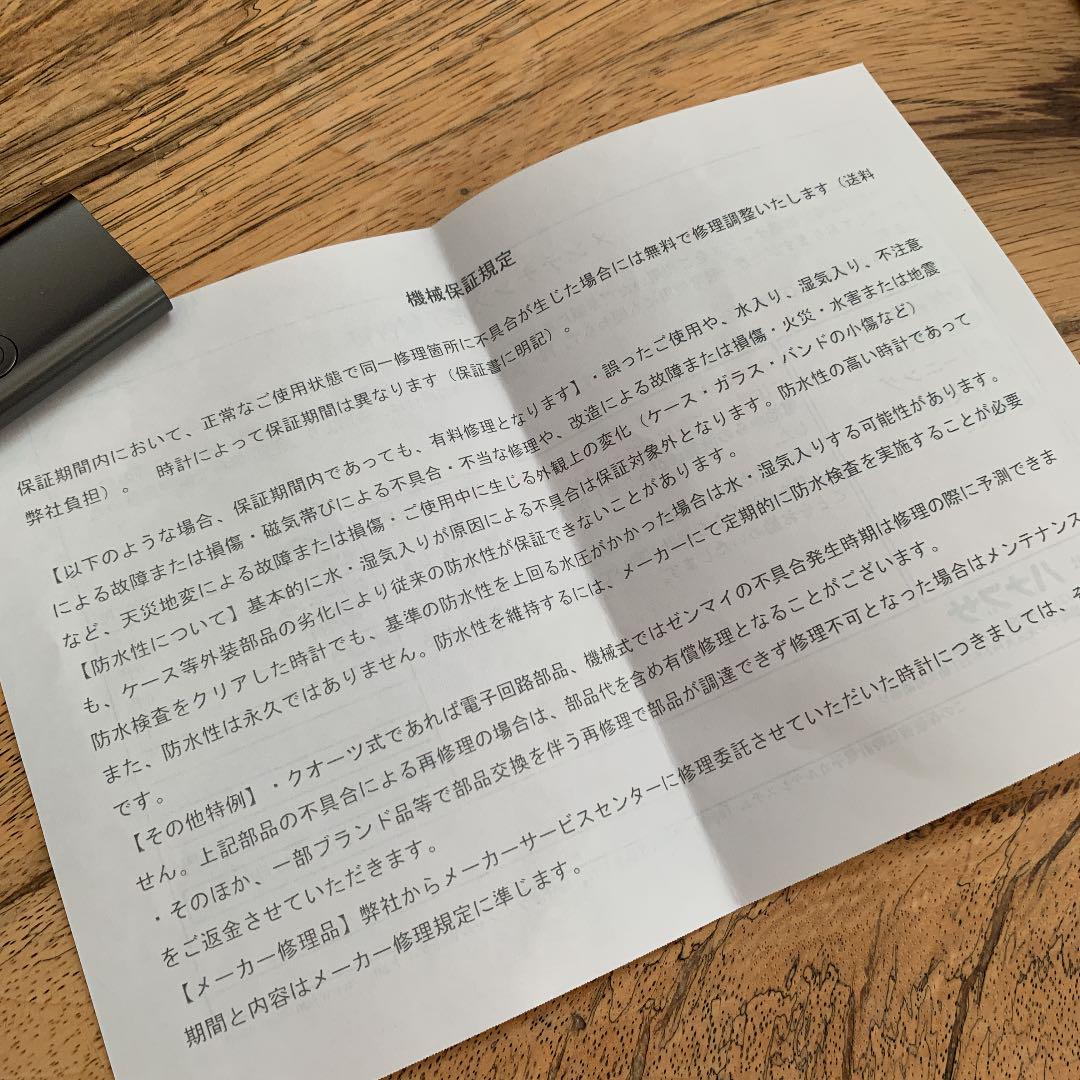 機械保証規定
保証期間内において、正常なご使用状態で同一修理箇所に不具合が生じた場合には無料で修理調整いたします（送料
弊社負担）。　時計によって保証期間は異なります（保証書に明記）。
【以下のような場合、保証期間内であっても、有料修理となります】・誤ったご使用や、水入り、湿気入り、不注意
による故障または損傷・磁気帯びによる不具合・不当な修理や、改造による故障または損傷・火災・水害または地震
など、天災地変による故障または損傷・ご使用中に生じる外観上の変化（ケース・ガラス・バンドの小傷など）
【防水性について】基本的に水・湿気入りが原因による不具合は保証対象外となります。防水性の高い時計であって
も、ケース等外装部品の劣化により従来の防水性が保証できないことがあります。
防水検査をクリアした時計でも、基準の防水性を上回る水圧がかかった場合は水・湿気入りする可能性があります。
また、防水性は永久ではありません。防水性を維持するには、メーカーにて定期的に防水検査を実施することが必要
です。
【その他特例】・クオーツ式であれば電子回路部品、機械式ではゼンマイの不具合発生時期は修理の際に予測できま
せん。上記部品の不具合による再修理の場合は、部品代を含め有償修理となることがございます。
・そのほか、一部ブランド品等で部品交換を伴う再修理で部品が調達できず修理不可となった場合はメンテナンス
をご返金させていただきます。
【メーカー修理品】弊社からメーカーサービスセンターに修理委託させていただいた時計につきましては、そ
期間と内容はメーカー修理規定に準じます。